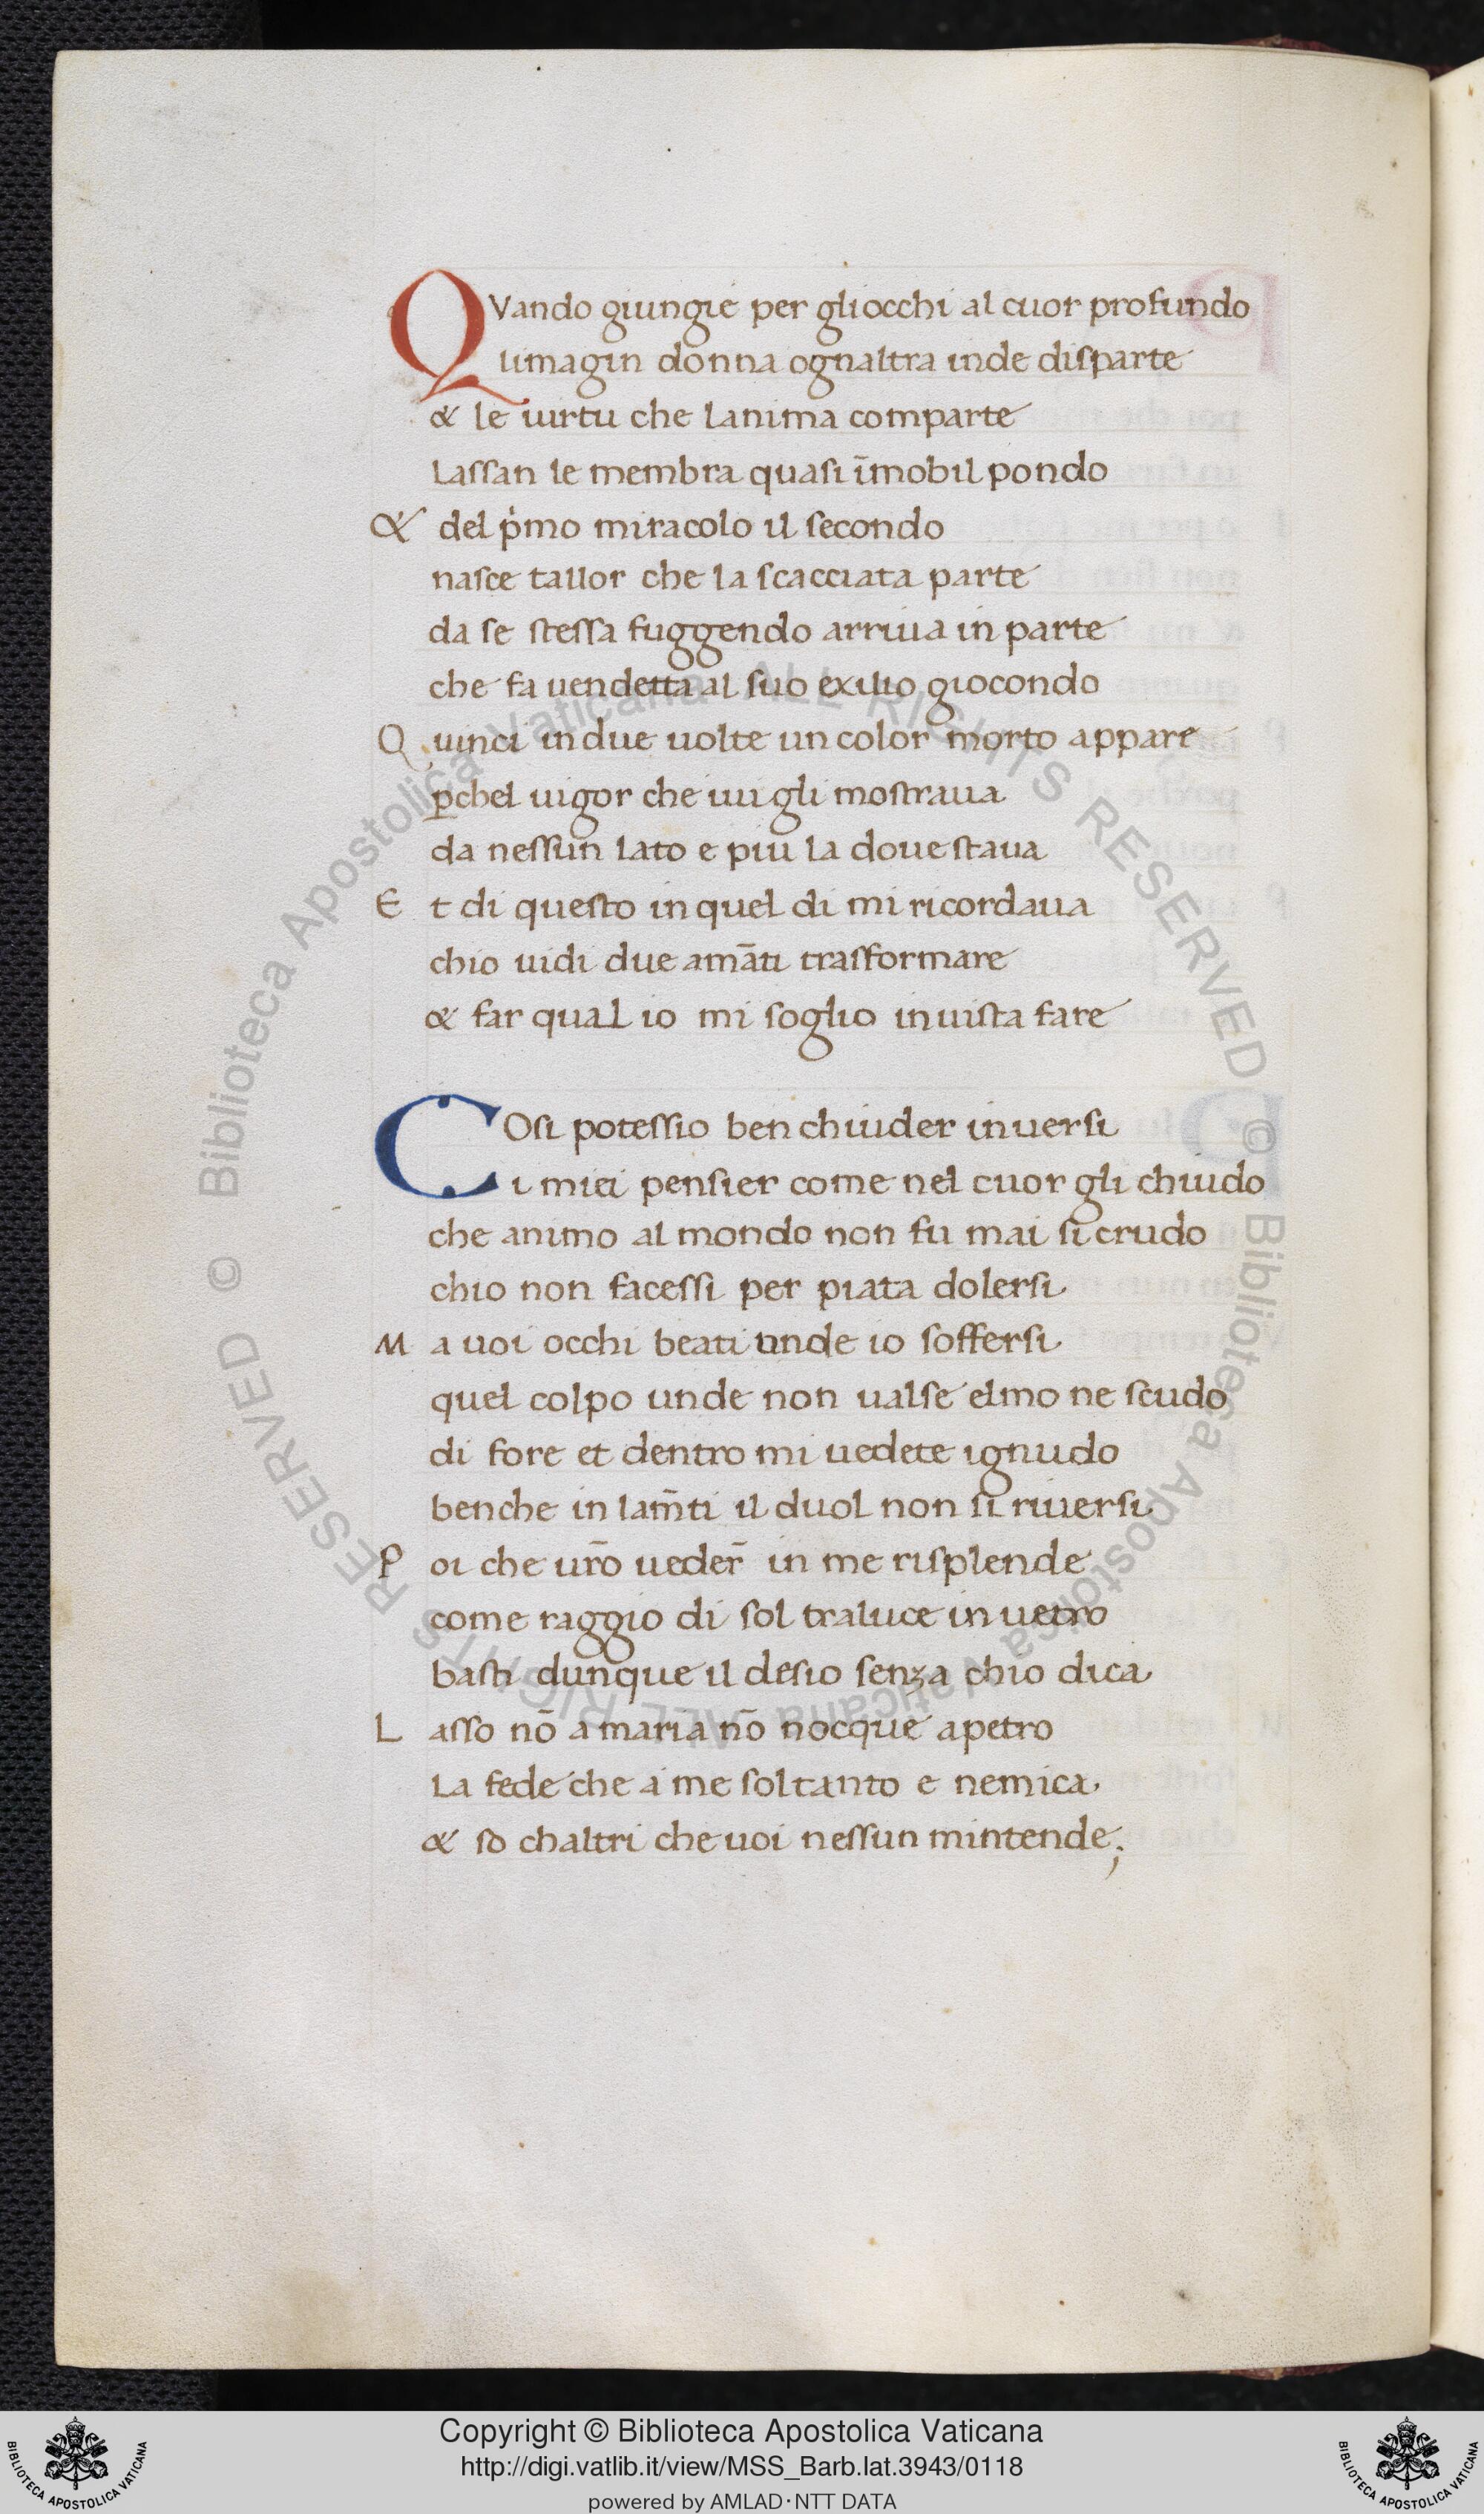 QVando giungie per gliocchi al cuor profundo
limagin donna ognaltra inde disparte
& le uirtu che lanima comparte
Lassan le membra quasi īmobil pondo
& del pͥmo miracolo il secondo
nasce tallor che la scacciata parte
da se stessa fuggendo arriua in parte
che fa uendetta al suo exilio giocondo
Quinci in due uolte un color morto appare
ꝑchel uigor che iui gli mostraua
da nessun lato e piu la doue staua
Et di questo in quel di mi ricordaua
chio uidi due amāti trasformare
& far qual io mi soglio in uista fare
COsi potessio ben chiuder in uersi
i miei pensier come nel cuor gli chiudo
che animo al mondo non fu mai si crudo
chio non facessi per piata dolersi
Ma uoi occhi beati unde io soffersi
quel colpo unde non ualse elmo ne scudo
di fore et dentro mi uedete ignudo
benche in lam̄ti il duol non si riuersi
Poi che ur̄o ueder̄ in me risplende
come raggio di sol traluce in uetro
basti dunque il desio senza chio dica
Lasso nō a maria nō nocque a petro
La fede che a me sol tanto e nemica
& so chaltri che uoi nessun mintende;
© Biblioteca Apostolica Vaticana ALL RIGHTS RESERVED
© Biblioteca Apostolica Vaticana ALL RIGHTS RESERVED
Copyright © Biblioteca Apostolica Vaticana
http://digi.vatlib.it/view/MSS_Barb.lat.3943/0118
powered by AMLAD·NTT DATA
BIBLIOTECA APOSTOLICA VATICANA
BIBLIOTECA APOSTOLICA VATICANA